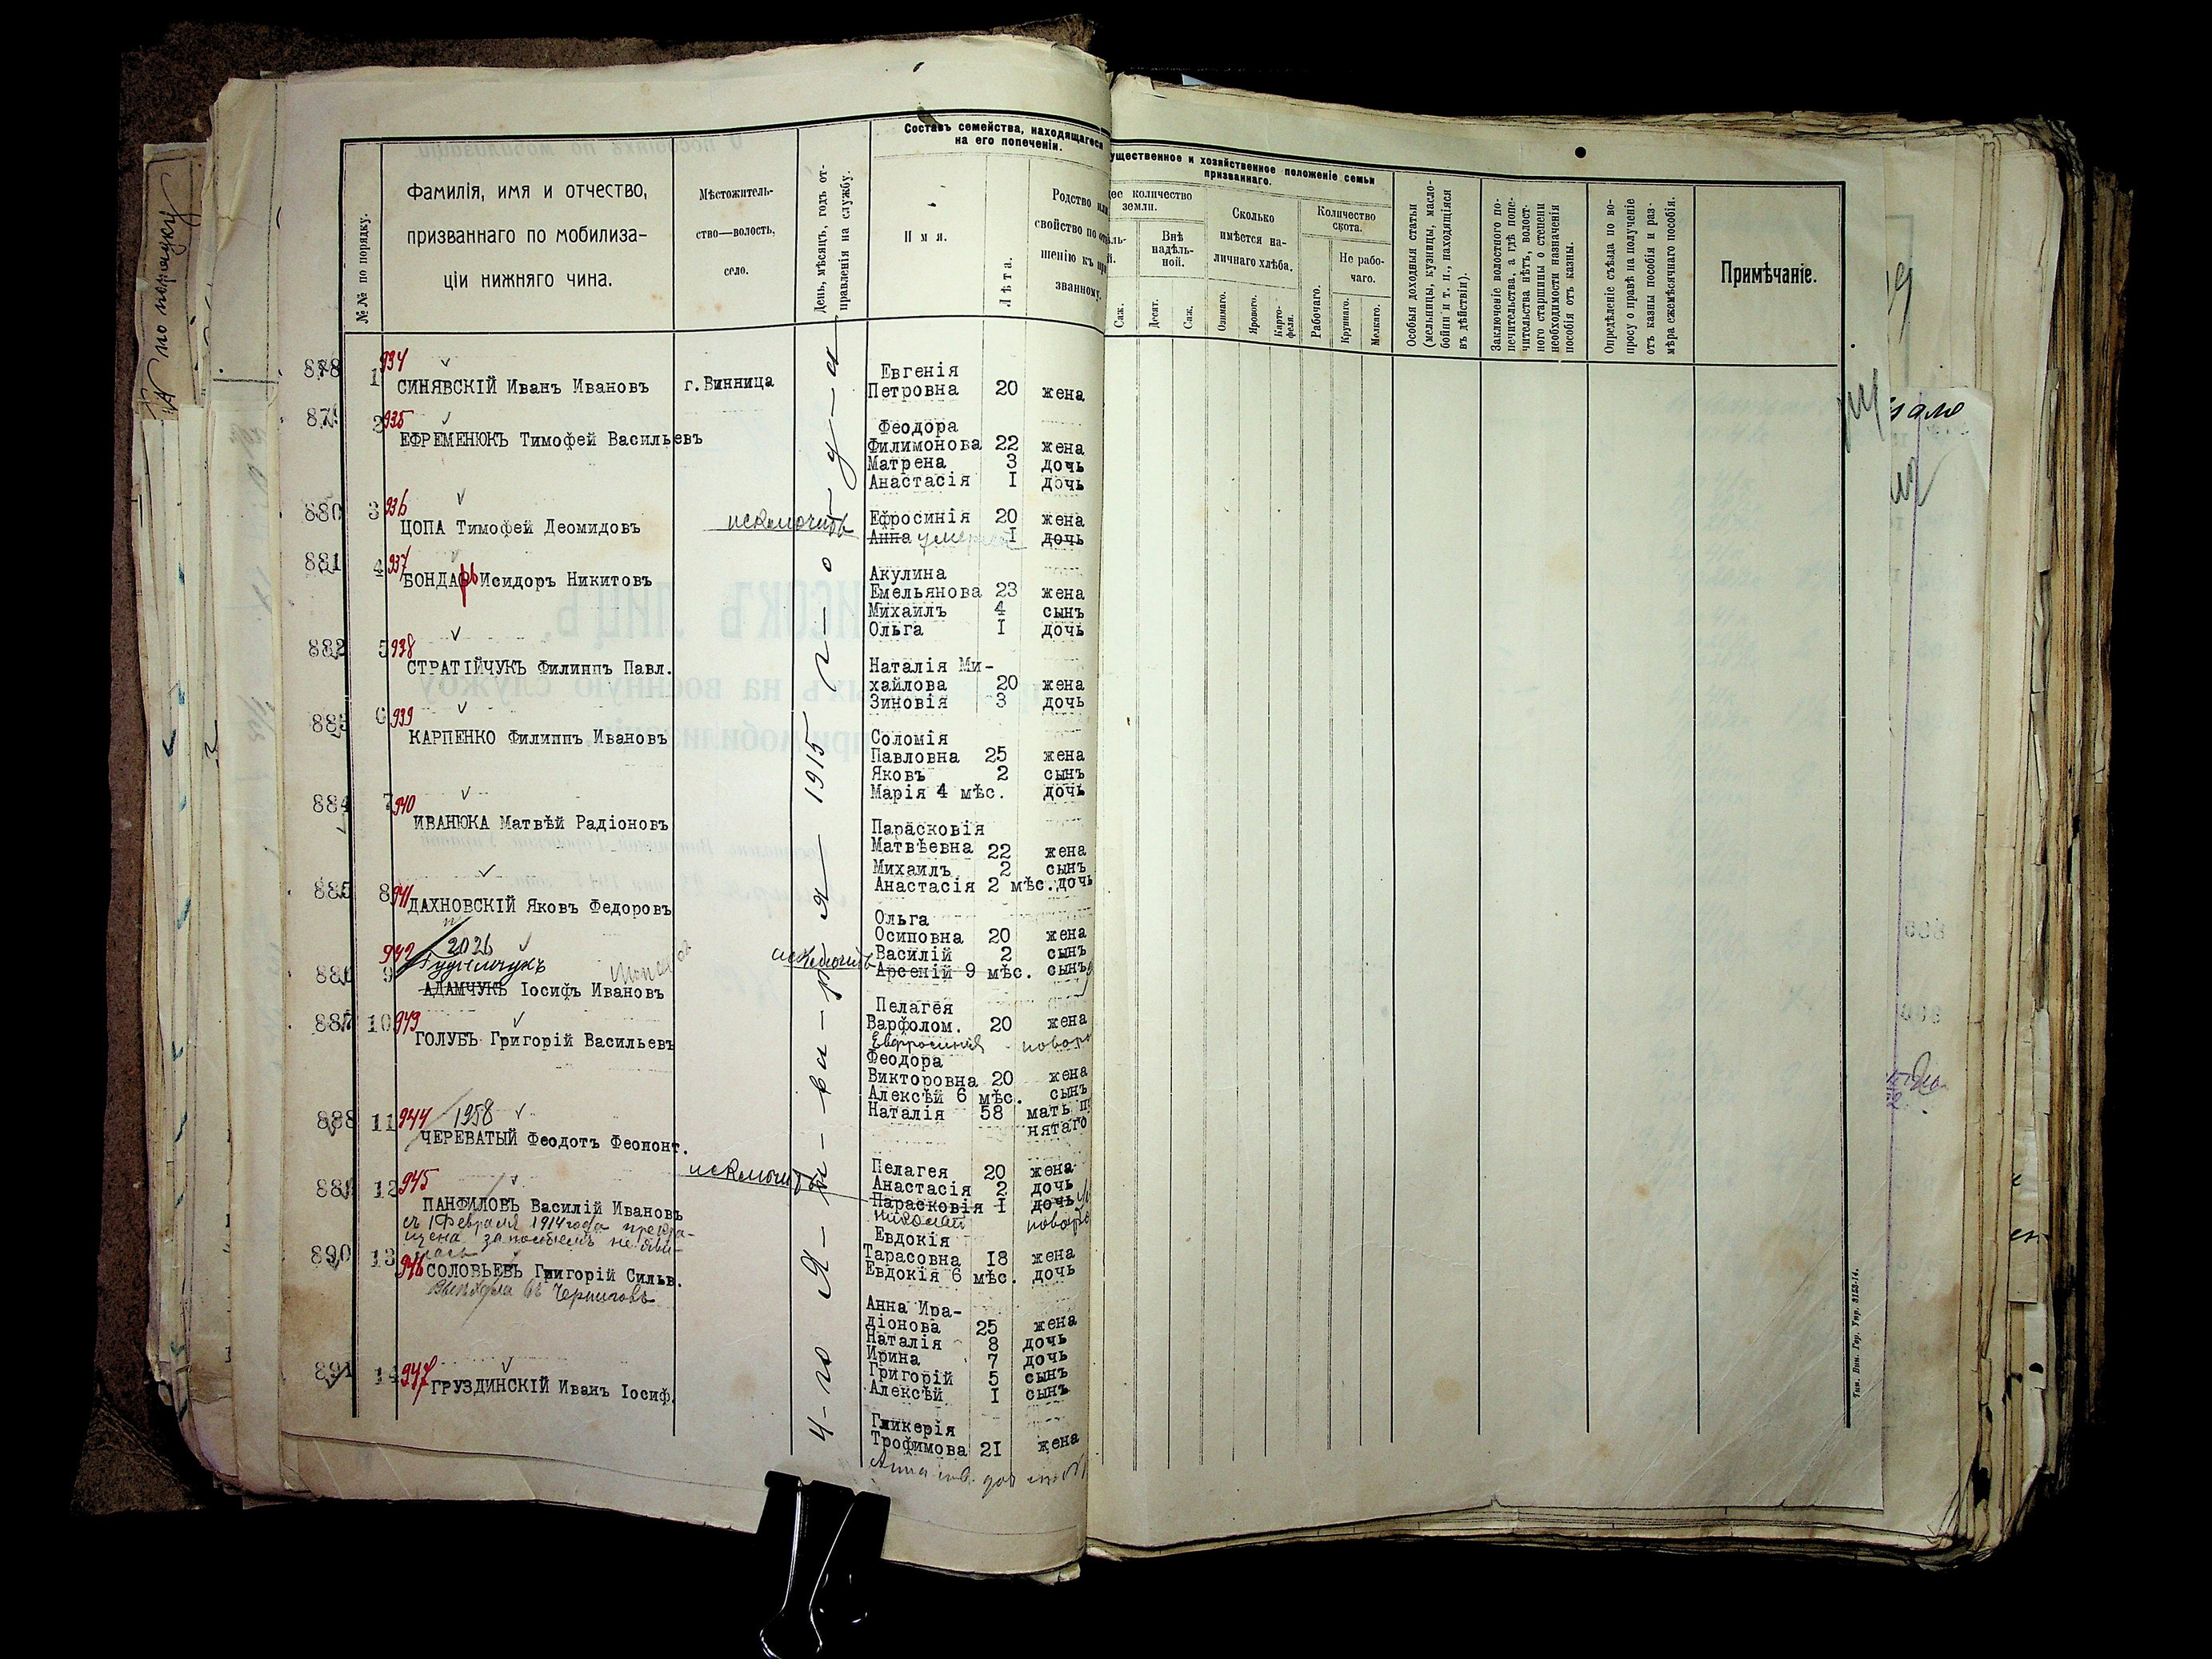 Составъ семейства, находящагося
на его попеченіи.
№№ по порядку.
Фамилія, имя и отчество,
призваннаго по мобилиза-
ціи нижняго чина.
Мѣстожитель-
ство—волость,
село.
День, мѣсяцъ, годъ от-
правленія на службу.
Имя.
Лѣта.
Родство или
свойство по от
шенію къ при
званному.
ущественное и хозяйственное положеніе семьи
призваннаго.
щее количество
земли.
Внѣ
надѣль-
ной.
Саж.
Десят.
Саж.
Сколько
имѣется на-
личнаго хлѣба.
Озимаго.
Яроваго.
Карто-
феля.
Количество
скота.
Рабочаго.
Не рабо-
чаго.
Крупнаго.
Мелкаго.
Особыя доходныя статьи
(мельницы, кузницы, масло-
бойни и т. п., находящіяся
въ дѣйствіи).
Заключеніе волостного по-
печительства, а гдѣ попе-
чительства нѣтъ, волост-
ного старшины о степени
необходимости назначенія
пособія отъ казны.
Опредѣленіе съѣзда по во-
просу о правѣ на полученіе
отъ казны пособія и раз-
мѣра ежемѣсячнаго пособія.
Примѣчаніе.
4-го Я-н-ва-р-я 1915 г-о-д-а
878 1 934 СИНЯВСКІЙ Иванъ Ивановъ г.Винница
Евгенія
Петровна 20 жена
879 2 935 ЕФРЕМЕНЮКЪ Тимофей Васильевъ
Феодора
Филимонова 22 жена
Матрена 3 дочь
Анастасія I дочь
880 3 936 ЦОПА Тимофей Деомидовъ
Ефросинія 20 жена
исключить Анна I дочь
881 4 937 БОНДАРЬ Исидоръ Никитовъ
Акулина
Емельянова 23 жена
Михаилъ 4 сынъ
Ольга I дочь
882 5 938 СТРАТІЙЧУКЪ Филиппъ Павл.
Наталія Ми-
хайлова 20 жена
Зиновія 3 дочь
883 6 939 КАРПЕНКО Филиппъ Ивановъ
Соломія
Павловна 25 жена
Яковъ 2 сынъ
Марія 4 мѣс. дочь
884 7 940 ИВАНЮКА Матвѣй Радіоновъ
Парасковія
Матвѣевна 22 жена
Михаилъ 2 сынъ
Анастасія 2 мѣс. дочь
885 8 941 ДАХНОВСКІЙ Яковъ Федоровъ
Ольга
Осиповна 20 жена
Василій 2 сынъ
исключить Арсеній 9 мѣс. сынъ
2026
886 9 942 АДАМЧУКЪ Іосифъ Ивановъ
Пелагея
Варфолом. 20 жена
Евфросинія
887 10 943 ГОЛУБЪ Григорій Васильевъ
Феодора
Викторовна 20 жена
Алексѣй 6 мѣс. сынъ
Наталія 58 мать п
нятаго
1958
888 11 944 ЧЕРЕВАТЫЙ Феодотъ Феононт.
Пелагея 20 жена
Анастасія 2 дочь
исключить Парасковія I дочь
Николай
889 12 945 ПАНФИЛОВЪ Василій Ивановъ
съ 1 февраля 1914 года прекра-
щена за пособіемъ не яви-
лась
Евдокія
Тарасовна I8 жена
Евдокія 6 мѣс. дочь
890 13 946 СОЛОВЬЕВЪ Григорій Сильв.
Выѣхала въ Черниговъ
Анна Ира-
діонова 25 жена
Наталія 8 дочь
Ирина 7 дочь
Григорій 5 сынъ
Алексѣй I сынъ
891 14 947 ГРУЗДИНСКІЙ Иванъ Іосиф.
Гликерія
Трофимова 2I жена
Анна
Тип. Вин. Гор. Упр. 3153-14.
№ по порядку